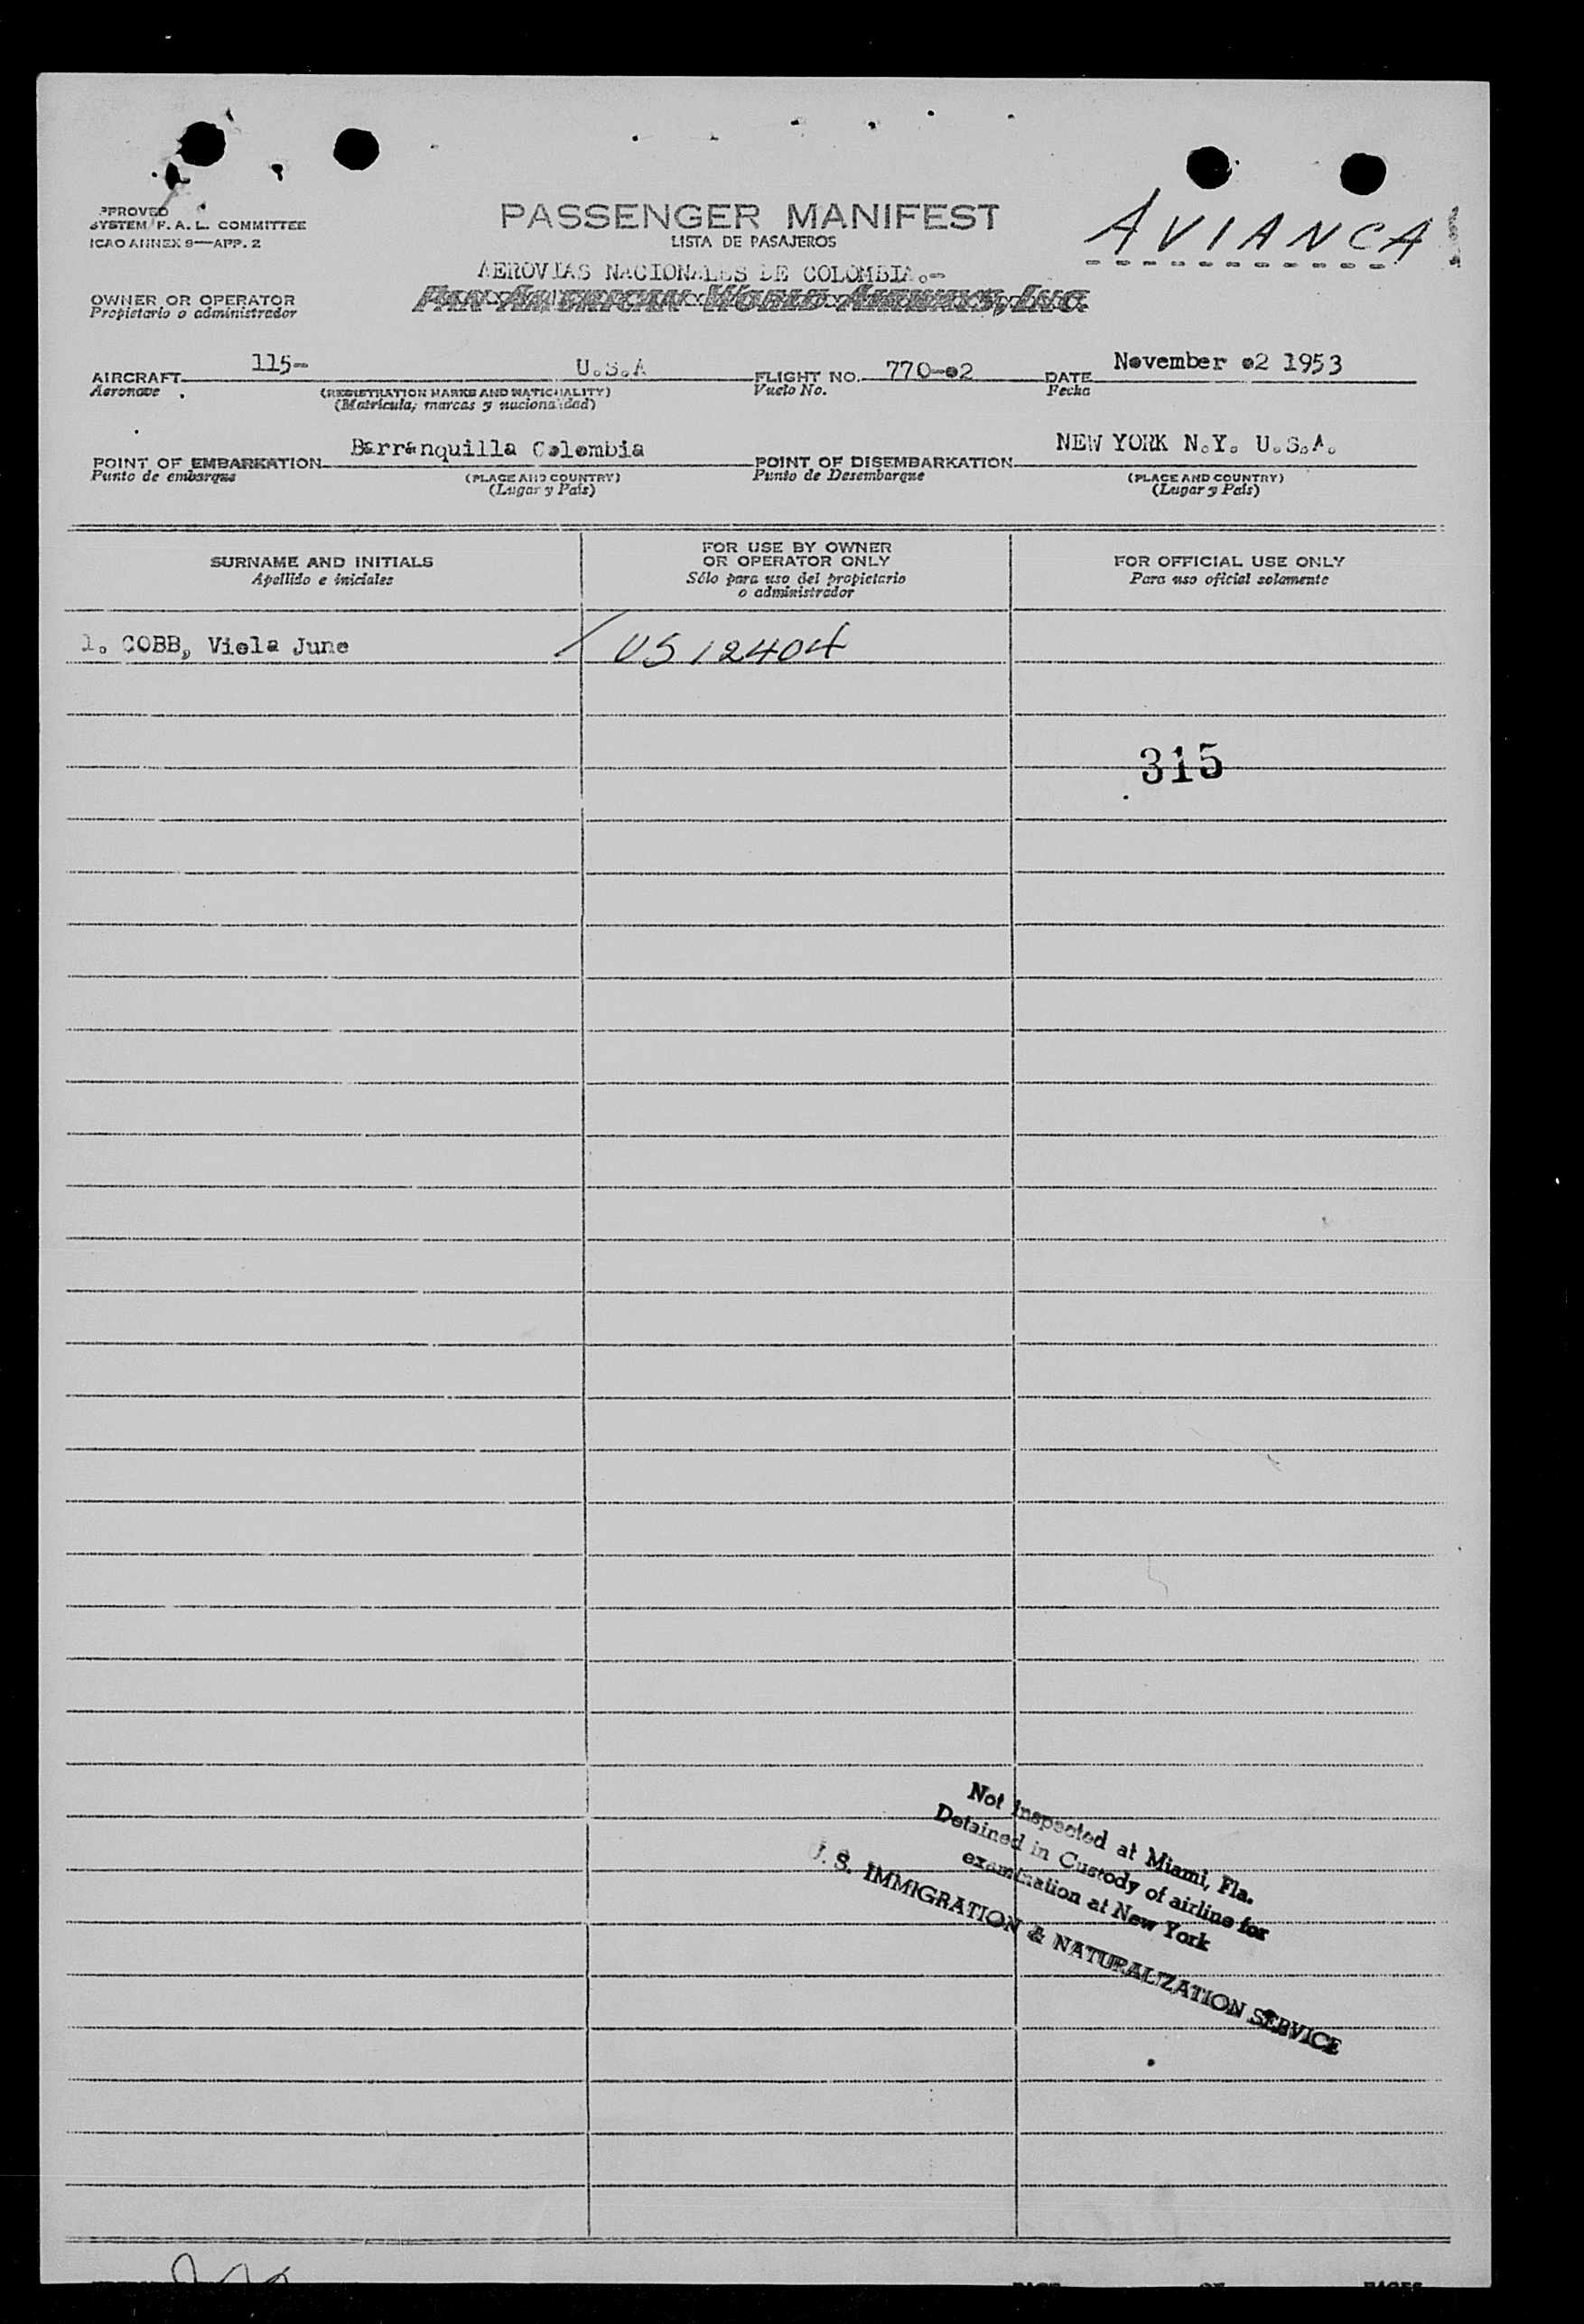 PPROVED
SYSTEM F. A. L. COMMITTEE
ICAO ANNEX 9—APP. 2
PASSENGER MANIFEST
LISTA DE PASAJEROS
AVIANCA
AEROVIAS NACIONALES DE COLOMBIA.-
PAN AMERICAN WORLD AIRWAYS, INC.
OWNER OR OPERATOR
Propietario o administrador
AIRCRAFT 115- U.S.A FLIGHT NO. 770-02 DATE November 02 1953
Aeronave (REGISTRATION MARKS AND NATIONALITY) Vuelo No. Fecha
(Matrícula, marcas y nacionalidad)
POINT OF EMBARKATION Barranquilla Colombia POINT OF DISEMBARKATION NEW YORK N.Y. U.S.A.
Punto de embarque (PLACE AND COUNTRY) Punto de Desembarque (PLACE AND COUNTRY)
(Lugar y País) (Lugar y País)
SURNAME AND INITIALS
Apellido e iniciales
FOR USE BY OWNER
OR OPERATOR ONLY
Sólo para uso del propietario
o administrador
FOR OFFICIAL USE ONLY
Para uso oficial solamente
1. COBB, Viola June / US 12404
315
Not inspected at Miami, Fla.
Detained in Custody of airline for
examination at New York
U. S. IMMIGRATION & NATURALIZATION SERVICE
PAGE OF PAGES